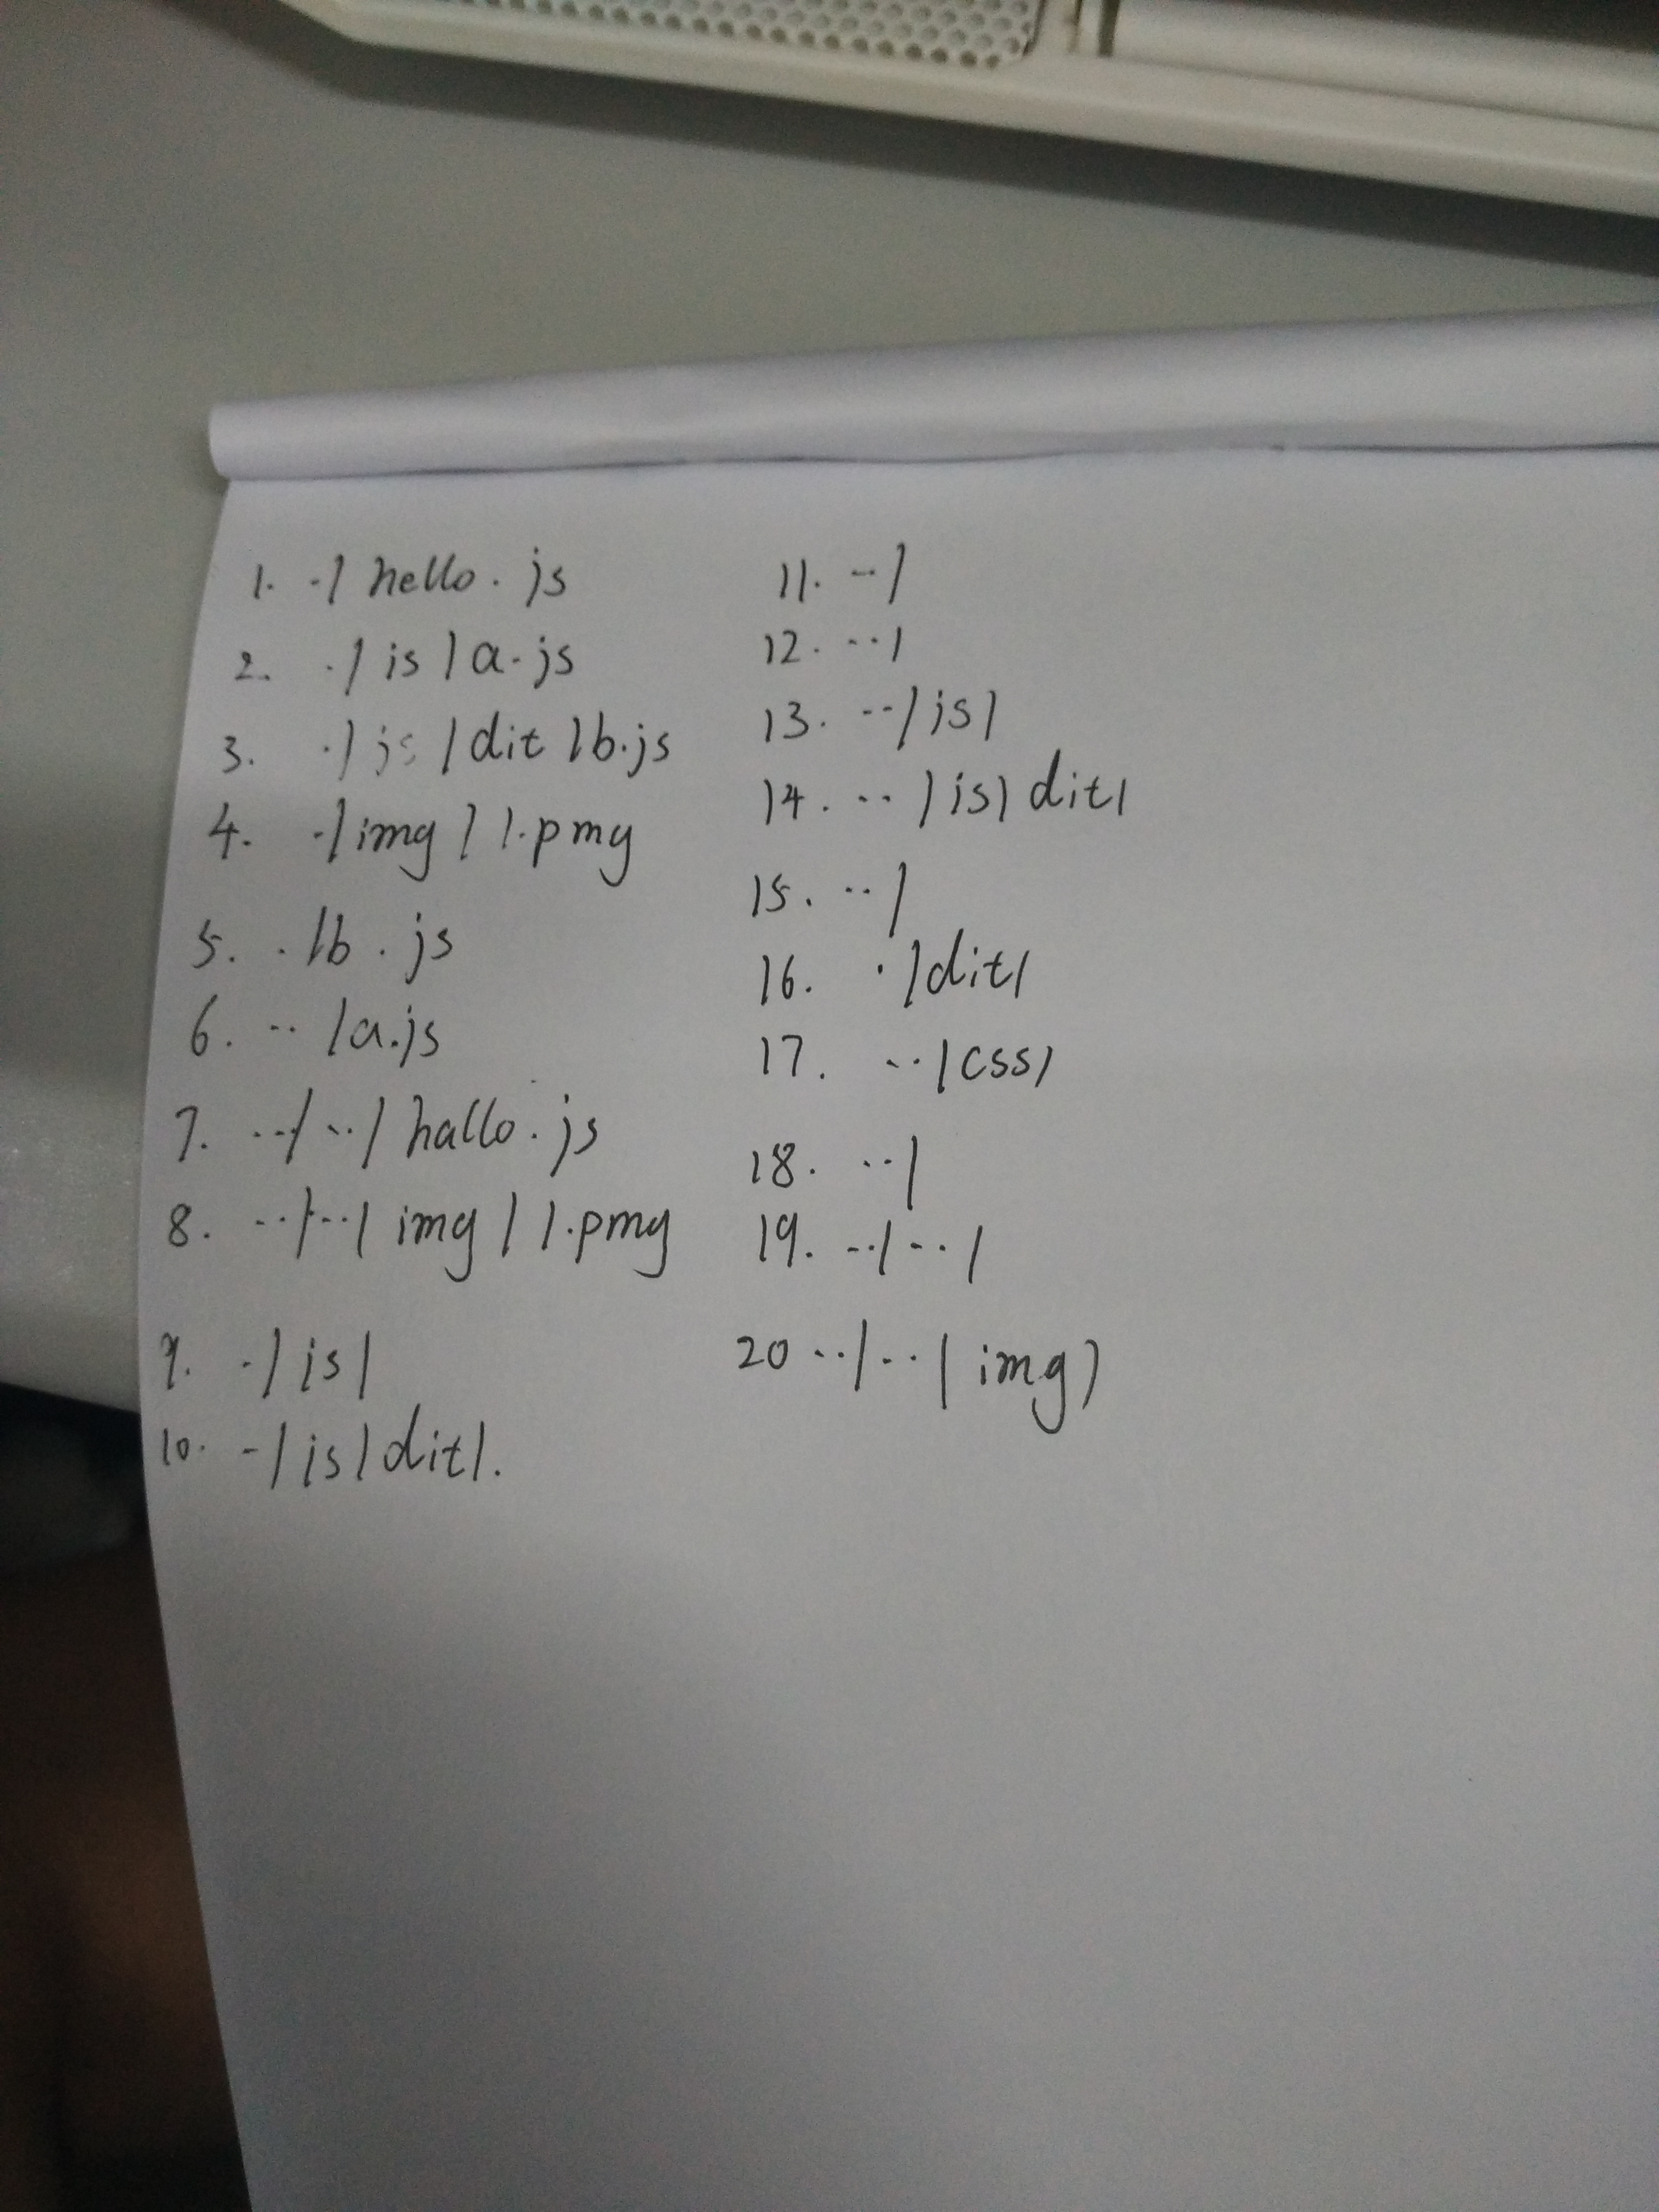 1. ./hello.js
2. ./js/a.js
3. ./js/dit/b.js
4. ./img/1.pmg
5. ./b.js
6. ../a.js
7. ../../hallo.js
8. ../../img/1.pmg
9. ./js/
10. ./js/dit/.
11. ../
12. ../
13. ../js/
14. ../js/dit/
15. ../
16. ./dit/
17. ../css/
18. ../
19. ../../
20 ../../img/